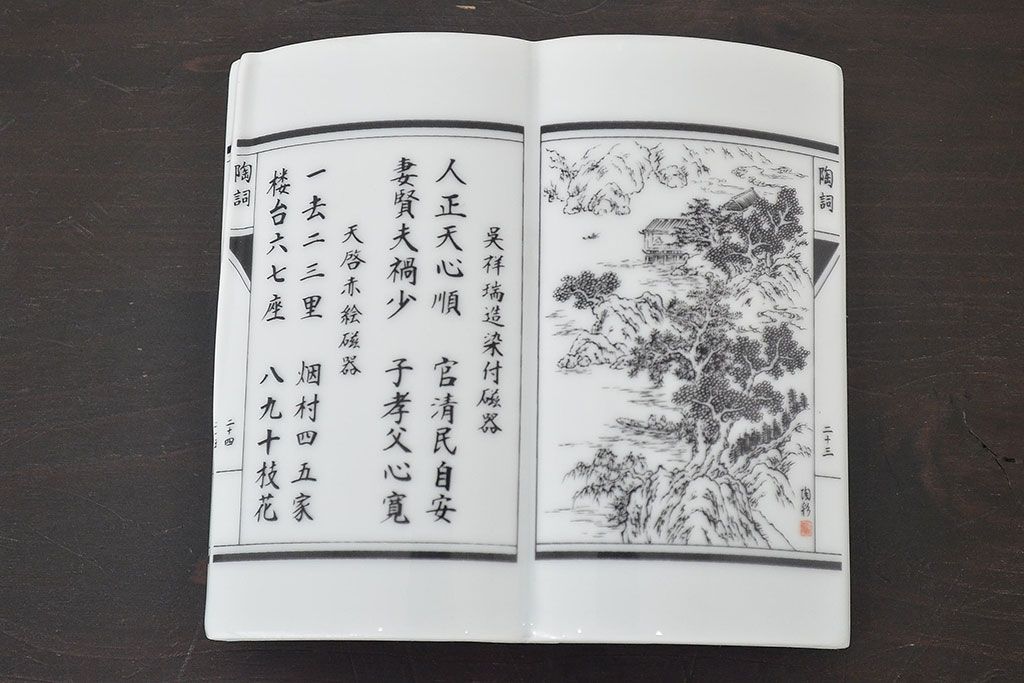 陶詞
二十三
吳祥瑞造染付磁器
人正天心順 官清民自安
妻賢夫禍少 子孝父心寬
天啓赤絵磁器
一去二三里 烟村四五家
楼台六七座 八九十枝花
陶詞
二十四